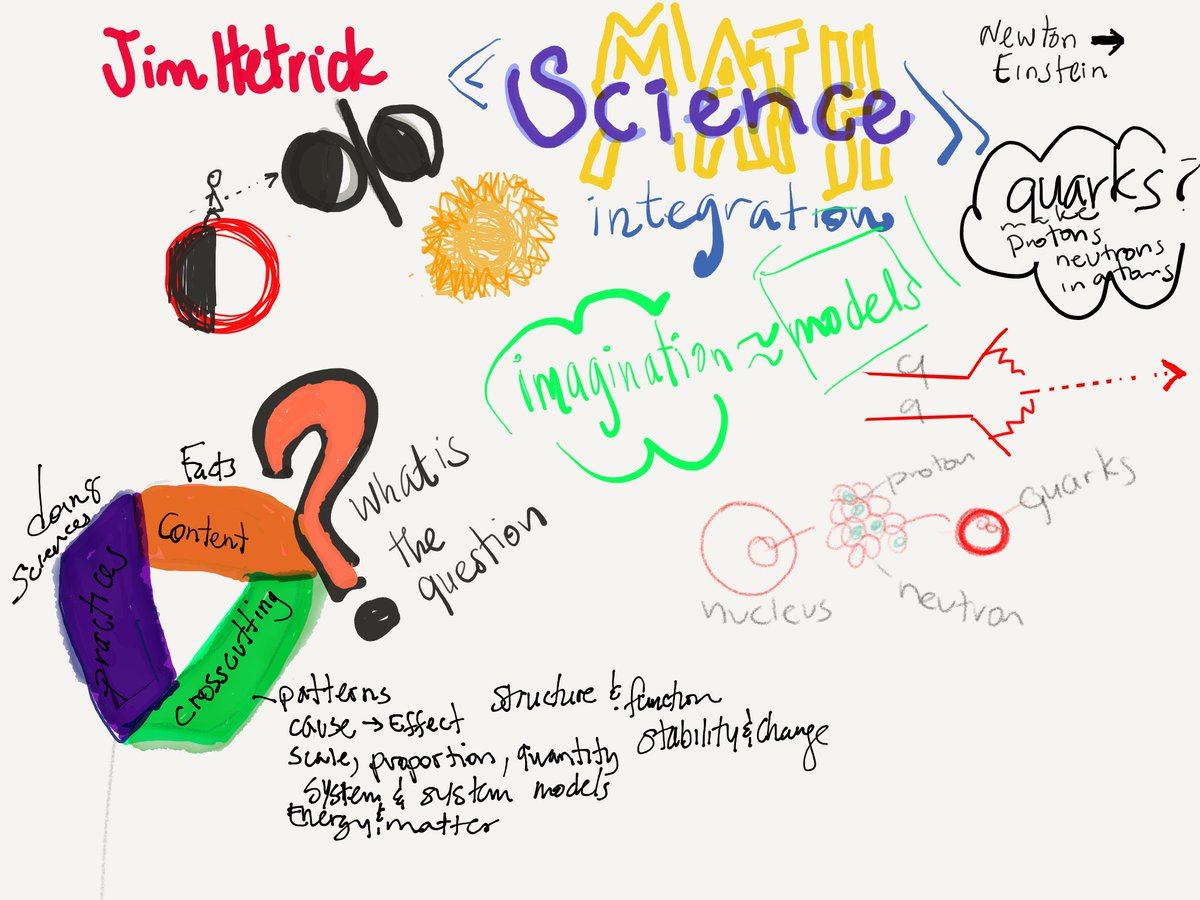 Jim Hetrick
« MATH
Science »
integration
Newton →
Einstein
quarks?
make
protons
neutrons
in atoms
imagination ≈ models
q
q
proton
quarks
nucleus
neutron
What is
the
question
doing
sciences
Facts
Content
practices
crosscutting
patterns
cause → Effect
scale, proportion, quantity
system & system models
Energy & matter
structure & function
stability & change